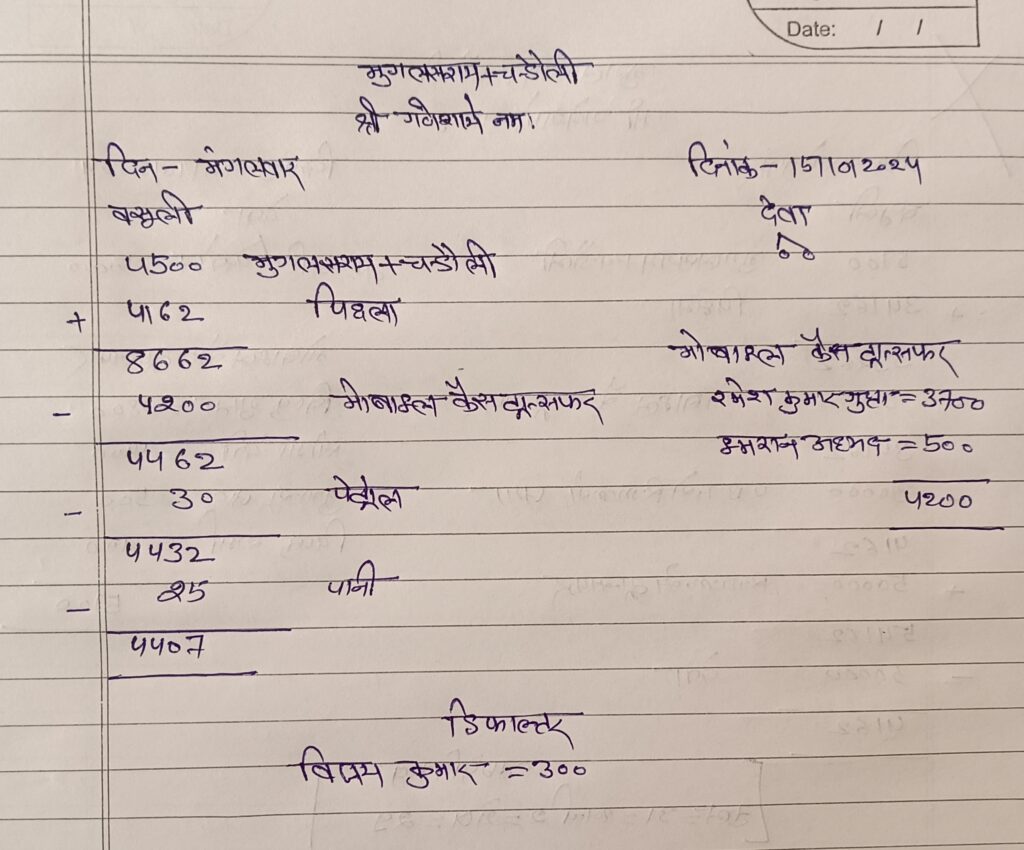 Date: / /
मुगलसराय+चन्दौली
श्री गणेशाये नमः
दिन- मंगलवार दिनांक-15/10/2024
वसूली देना
4500 मुगलसराय+चन्दौली 00
+ 4162 पिछला
8662 मोबाइल कैस ट्रान्सफर
- 4200 मोबाइल कैस ट्रान्सफर रमेश कुमार गुप्ता=3700
4462 इमरान अहमद =500
- 30 पेट्रोल 4200
4432
- 25 पानी
4407
डिफाल्टर
विजय कुमार =300